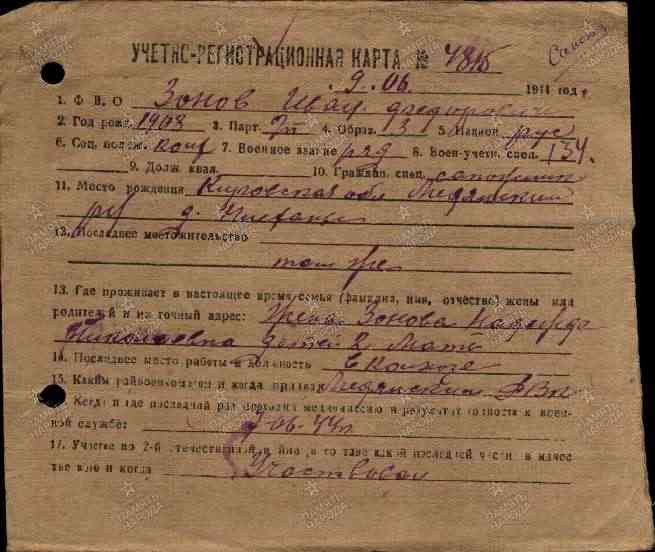 УЧЕТНО-РЕГИСТРАЦИОННАЯ КАРТА №
9. 06. 1944 году
1. Ф И О Зонов Иван Федорович
2. Год рожд. 1908 3. Парт. 4. Образ. 3 5. Национ. рус
6. Соц. полож. 7. Военное звание ряд 8. Воен-учетн. спец. 134.
9. Долж квал. 10. Граждан. спец. сапожник
11. Место рождения Кировская обл
д.
12. Последнее местожительство
там же
13. Где проживает в настоящее время семья (фамилия, имя, отчество) жены или
родителей и их точный адрес: Жена Зонова Надежда
Николаевна детей 2 мать
14. Последнее место работы и должность в колхозе
15. Каким райвоенкоматом и когда призван
Когда и где последний раз проходил медкомиссию и результат годности к воен-
ной службе: 9-06-44г
17. Участие во 2-й отечественной войне, в составе какой последней части, в качес
тве кого и когда Участвовал
ПАМЯТЬ НАРОДА